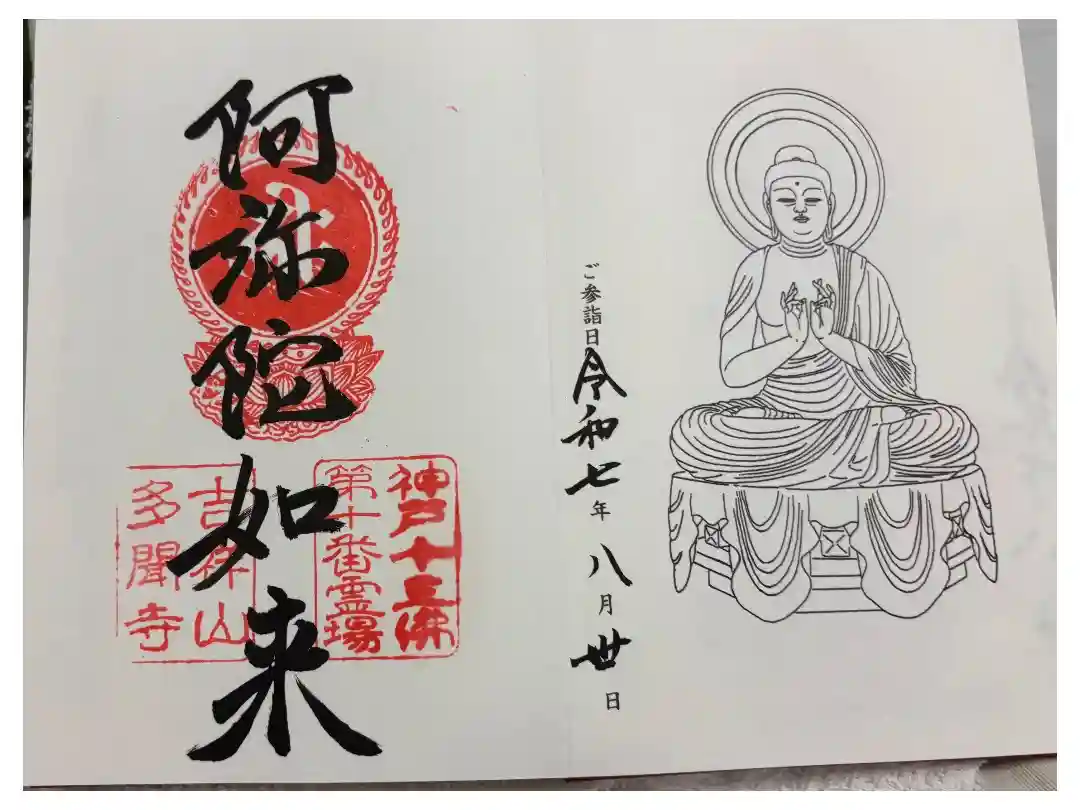 ご参詣日令和七年八月丗日
阿弥陀如来
神戸十三佛
第十番霊場
吉祥山
多聞寺